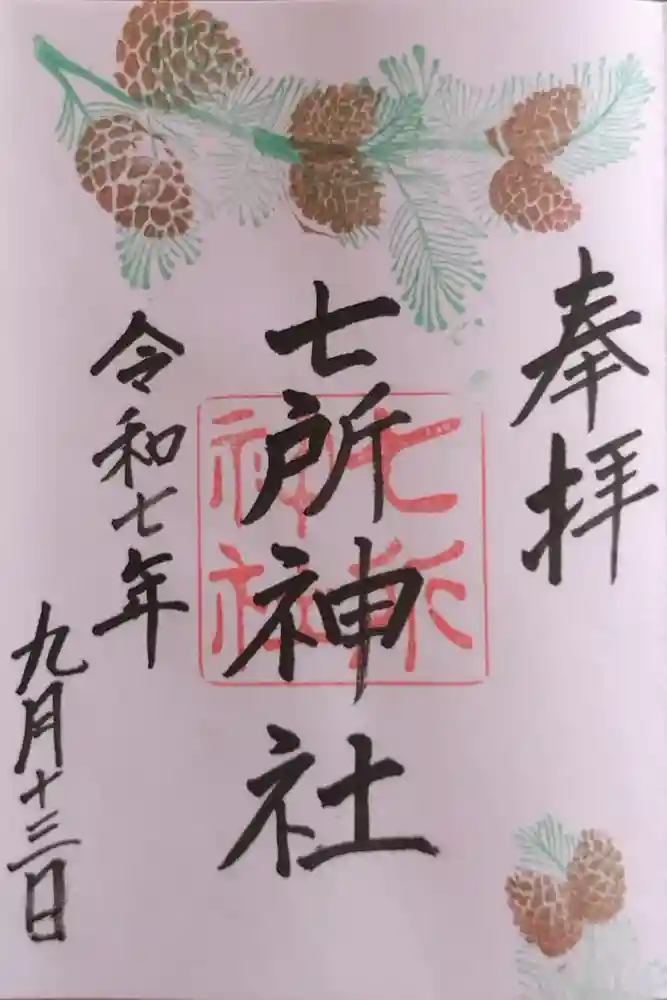 奉拝
七所神社
七所
神社
令和七年
九月十三日